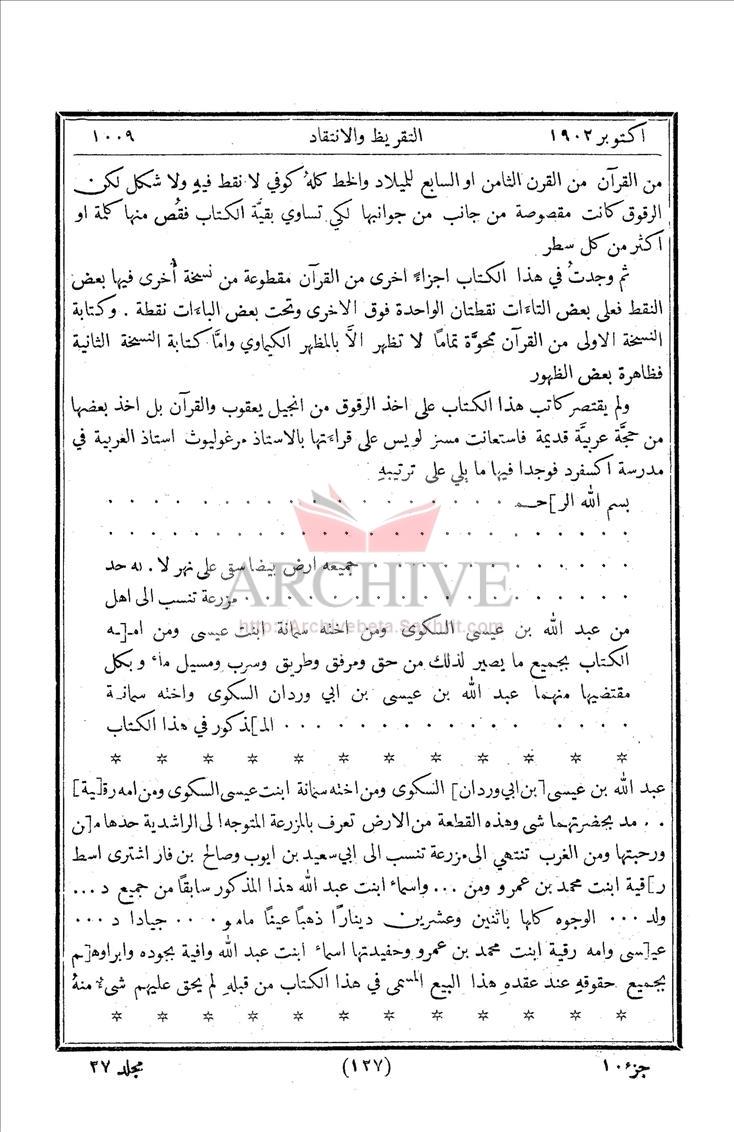 اكتوبر ١٩٠٢ التقريظ والانتقاد ١٠٠٩
من القرآن من القرن الثامن او السابع للميلاد والخط كلهُ كوفي لا نقط فيهِ ولا شكل لكن
الرقوق كانت مقصوصة من جانب من جوانبها لكي تساوي بقيَّة الكتاب فقُص منها كلمة او
اكثر من كل سطر
ثم وجدتُ في هذا الكتاب اجزاءً اخرى من القرآن مقطوعة من نسخة أُخرى فيها بعض
النقط فعلى بعض التاءَات نقطتان الواحدة فوق الاخرى وتحت بعض الباءَات نقطة . وكتابة
النسخة الاولى من القرآن ممحوَّة تمامًا لا تظهر الاَّ بالمظهر الكيماوي وامَّا كتابة النسخة الثانية
فظاهرة بعض الظهور
ولم يقتصر كاتب هذا الكتاب على اخذ الرقوق من انجيل يعقوب والقرآن بل اخذ بعضها
من حجَّة عربيَّة قديمة فاستعانت مسز لويس على قراءَتها بالاستاذ مرغوليوث استاذ العربية في
مدرسة اكسفرد فوجدا فيها ما يلي على ترتيبهِ
بسم الله الر]حـمـ . . . . . . . . . . . . . . . .
. . . . . . . . . . . . . . . . . . . .
. . . . . . . . . . جميعه ارض بيضا سقى على نهر لا . به حد
. . . . . . . . . . . . . . . مزرعة تنسب الى اهل
من عبد الله بن عيسى السكوى ومن اخته سمانة ابنت عيسى ومن امـ[ـه
الكتاب بجميع ما يصير لذلك من حق ومرفق وطريق وسرب ومسيل ماء وبكل
مقتضيها منهما عبد الله بن عيسى بن ابي وردان السكوى واخته سمانة
. . . . . . . . . . . . . المـ]ذكور في هذا الكتاب
* * * * * * * * * * * *
عبد الله بن عيسى [بن ابي وردان] السكوى ومن اخته سمانة ابنت عيسى السكوى ومن امه رقـ[ـية]
. . مد بحضرتهما شى وهذه القطعة من الارض تعرف بالمزرعة المتوجه الى الراشدية حدها مـ[ـن
ورحبتها ومن الغرب تنتهي الى مزرعة تنسب الى ابي سعيد بن ايوب وصالح بن فار اشترى اسط
ر]قية ابنت محمد بن عمرو ومن ... واسماء ابنت عبد الله هذا المذكور سابقًا من جميع د...
ولد ... الوجوه كلها باثنين وعشرين دينارًا ذهبًا عينًا مامو ... جيادا د ...
عيـ[ـسى وامه رقية ابنت محمد بن عمرو وحفيدتها اسماء ابنت عبد الله وافية بجوده وابراوهـ[ـم
بجميع حقوقهِ عند عقده هذا البيع المسمى في هذا الكتاب من قبلهِ لم يحق عليهم شىء منهُ
* * * * * * * * * * * *
جزء ١٠ (١٢٧) مجلد ٢٧
ARCHIVE
http://Archivebeta.Sakhrit.com